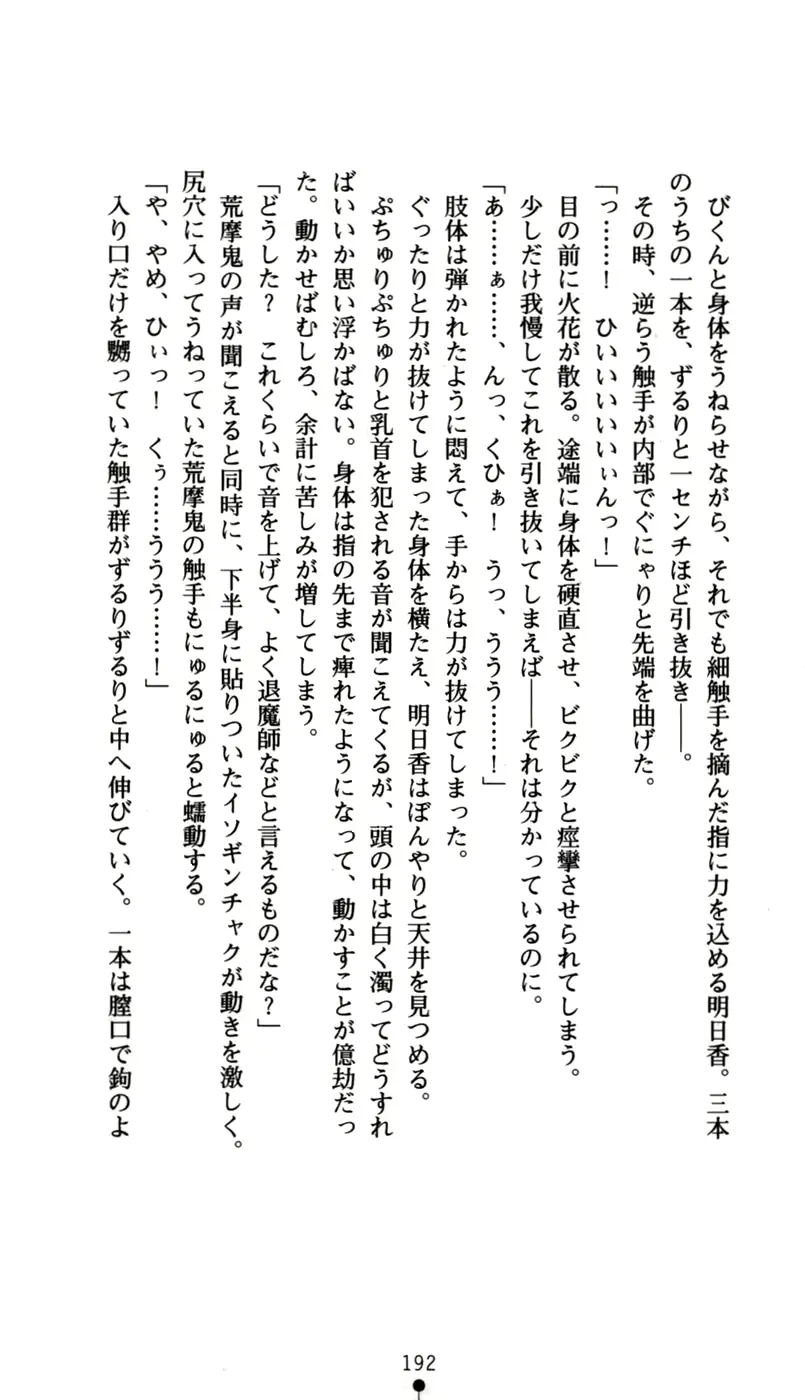 びくんと身体をうねらせながら、それでも細触手を摘んだ指に力を込める明日香。三本
のうちの一本を、ずるりと一センチほど引き抜き――。
その時、逆らう触手が内部でぐにゃりと先端を曲げた。
「っ……！　ひぃいいいいぃんっ！」
目の前に火花が散る。途端に身体を硬直させ、ビクビクと痙攣させられてしまう。
少しだけ我慢してこれを引き抜いてしまえば――それは分かっているのに。
「あ……ぁ……、んっ、くひぁ！　うっ、ううう……！」
肢体は弾かれたように悶えて、手からは力が抜けてしまった。
ぐったりと力が抜けてしまった身体を横たえ、明日香はぼんやりと天井を見つめる。
ぷちゅりぷちゅりと乳首を犯される音が聞こえてくるが、頭の中は白く濁ってどうすれ
ばいいか思い浮かばない。身体は指の先まで痺れたようになって、動かすことが億劫だっ
た。動かせばむしろ、余計に苦しみが増してしまう。
「どうした？　これくらいで音を上げて、よく退魔師などと言えるものだな？」
荒摩鬼の声が聞こえると同時に、下半身に貼りついたイソギンチャクが動きを激しく。
尻穴に入ってうねっていた荒摩鬼の触手もにゅるにゅると蠕動する。
「や、やめ、ひぃっ！　くぅ……ううう……！」
入り口だけを嬲っていた触手群がずるりずるりと中へ伸びていく。一本は膣口で鉤のよ
192